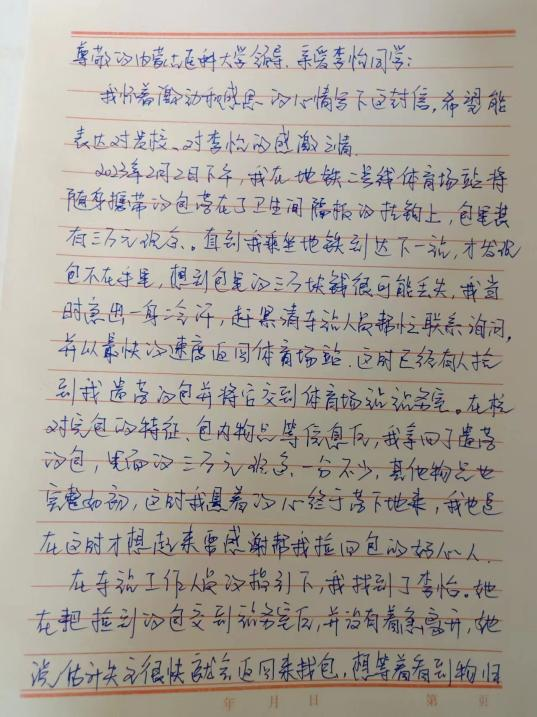 尊敬的内蒙古医科大学领导、亲爱李怡同学：
我怀着激动和感恩的心情写下这封信，希望能
表达对贵校、对李怡的感激之情。
2023年2月2日下午，我在地铁二号线体育场站将
随身携带的包落在了卫生间隔板的挂钩上，包里装
有三万元现金。直到我乘坐地铁到达下一站，才发现
包不在手里，想到包里的三万块钱很可能丢失，我当
时急出一身冷汗，赶紧请车站人员帮忙联系询问，
并以最快的速度返回体育场站。这时已经有人捡
到我遗落的包并将它交到体育场站站务室。在核
对完包的特征、包内物品等信息后，我拿回了遗落
的包，里面的三万元现金一分不少，其他物品也
完整如初，这时我悬着的心终于落下地来，我也是
在这时才想起来要感谢帮我捡回包的好心人。
在车站工作人员的指引下，我找到了李怡。她
在把捡到的包交到站务室后，并没有着急离开，她
说估计失主很快就会返回来找包，想等着看到物归
年 月 日 第 页